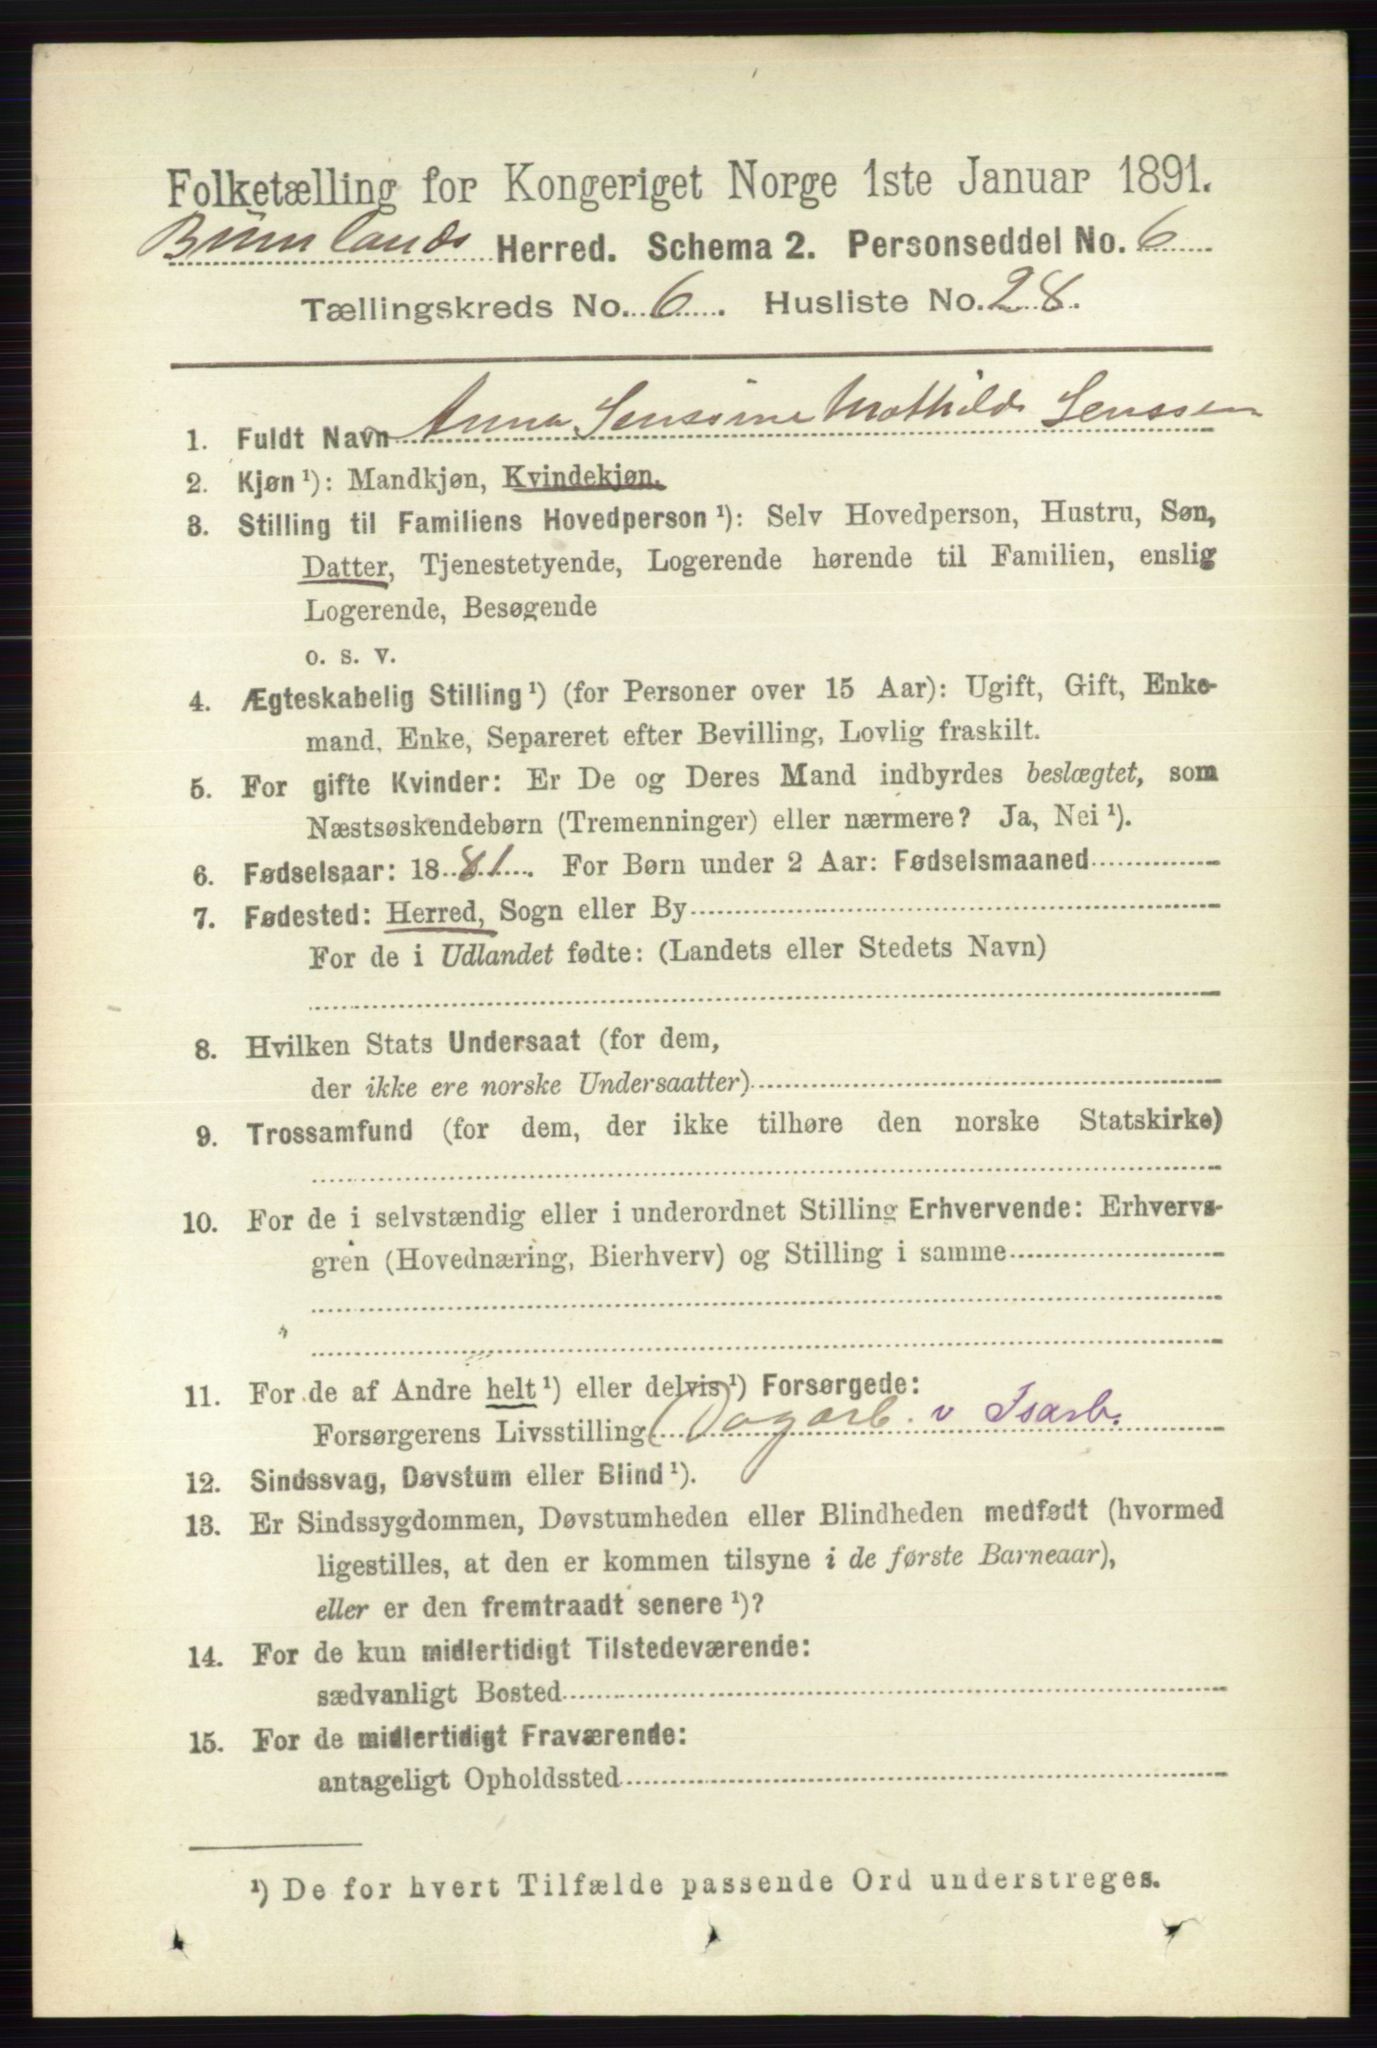 Folketælling for Kongeriget Norge 1ste Januar 1891.
Brunlands Herred. Schema 2. Personseddel No. 6
Tællingskreds No. 6. Husliste No. 28.
1. Fuldt Navn Anna Jenssine Mathilde Jenssen
2. Kjøn ¹): Mandkjøn, Kvindekjøn.
3. Stilling til Familiens Hovedperson ¹): Selv Hovedperson, Hustru, Søn,
Datter, Tjenestetyende, Logerende hørende til Familien, enslig
Logerende, Besøgende
o. s. v.
4. Ægteskabelig Stilling ¹) (for Personer over 15 Aar): Ugift, Gift, Enke-
mand, Enke, Separeret efter Bevilling, Lovlig fraskilt.
5. For gifte Kvinder: Er De og Deres Mand indbyrdes beslægtet, som
Næstsøskendebørn (Tremenninger) eller nærmere? Ja, Nei ¹).
6. Fødselsaar: 1881. For Børn under 2 Aar: Fødselsmaaned
7. Fødested: Herred, Sogn eller By
For de i Udlandet fødte: (Landets eller Stedets Navn)
8. Hvilken Stats Undersaat (for dem,
der ikke ere norske Undersaatter)
9. Trossamfund (for dem, der ikke tilhøre den norske Statskirke)
10. For de i selvstændig eller i underordnet Stilling Erhvervende: Erhvervs-
gren (Hovednæring, Bierhverv) og Stilling i samme
11. For de af Andre helt ¹) eller delvis ¹) Forsørgede:
Forsørgerens Livsstilling Dagarb. v Isarb.
12. Sindssvag, Døvstum eller Blind ¹).
13. Er Sindssygdommen, Døvstumheden eller Blindheden medfødt (hvormed
ligestilles, at den er kommen tilsyne i de første Barneaar),
eller er den fremtraadt senere ¹)?
14. For de kun midlertidigt Tilstedeværende:
sædvanligt Bosted
15. For de midlertidigt Fraværende:
antageligt Opholdssted
¹) De for hvert Tilfælde passende Ord understreges.